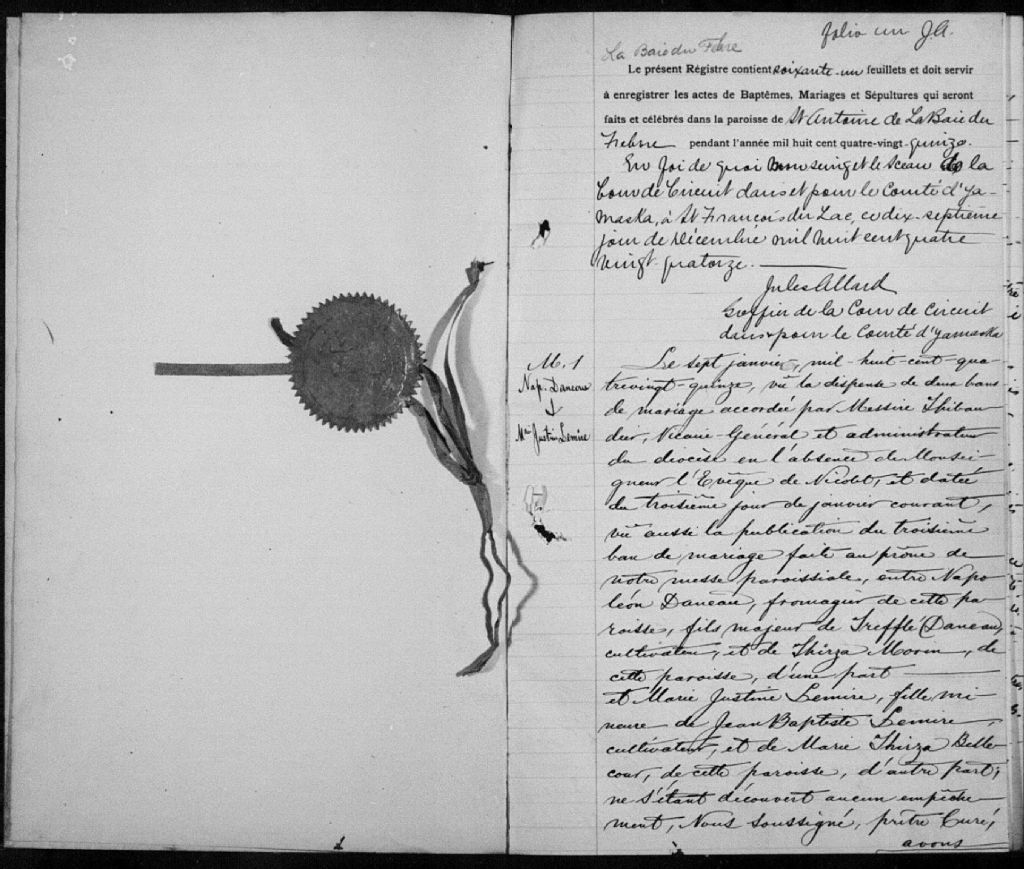 folio un J.A.
La Baie du Febvre
Le présent Régistre contient soixante-un feuillets et doit servir
à enregistrer les actes de Baptêmes, Mariages et Sépultures qui seront
faits et célébrés dans la paroisse de St Antoine de La Baie du
Febvre pendant l'année mil huit cent quatre-vingt-quinze.
En foi de quoi mon seing et le sceau de la
Cour de Circuit dans et pour le Comté d'Ya-
maska, à St François du Lac, ce dix-septième
jour de Décembre mil huit cent quatre
vingt-quatorze.
Jules Allard
Greffier de la Cour de Circuit
dans & pour le Comté d'Yamaska
M. 1
Nap. Daneau
&
Mie Justine Lemire
Le sept janvier, mil-huit-cent-qua-
trevingt-quinze, vû la dispense de deux bans
de mariage accordée par Messire Thibau-
dier, Vicaire-Général et administrateur
du diocèse en l'absence de Monsei-
gneur l'Evêque de Nicolet, et datée
du troisième jour de janvier courant,
vû aussi la publication du troisième
ban de mariage faite au prône de
notre messe paroissiale, entre Napo-
léon Daneau, fromagier de cette pa-
roisse, fils majeur de Trefflé (Daneau)
cultivateur, et de Thirza Morin, de
cette paroisse, d'une part
et Marie Justine Lemire, fille mi-
neure de Jean Baptiste Lemire,
cultivateur, et de Marie Thirza Belle-
cour, de cette paroisse, d'autre part;
ne s'étant découvert aucun empêche-
ment, Nous soussigné, prêtre Curé,
avons